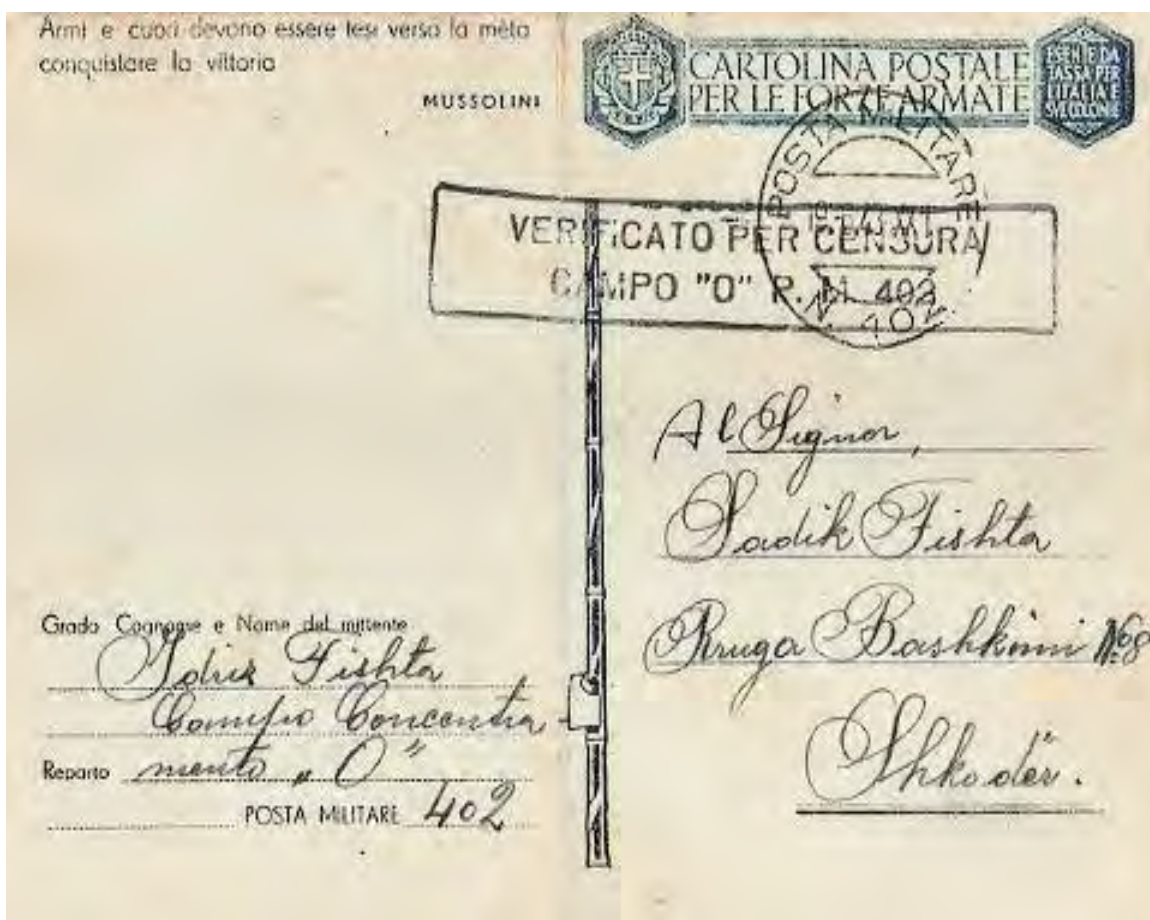 Armi e cuori devono essere tesi verso la mèta
conquistare la vittoria
MUSSOLINI
CARTOLINA POSTALE
PER LE FORZE ARMATE
ESENTE DA
TASSA PER
L'ITALIA E
SUE COLONIE
POSTA MILITARE
N. 402
VERIFICATO PER CENSURA
CAMPO "O" P. M. 402
Al Signor,
Sadik Fishta
Rruga Bashkimi No 8
Shkodër.
Grado Cognome e Nome del mittente
Idriz Fishta
Campo Concentra-
Reparto mento „O"
POSTA MILITARE 402